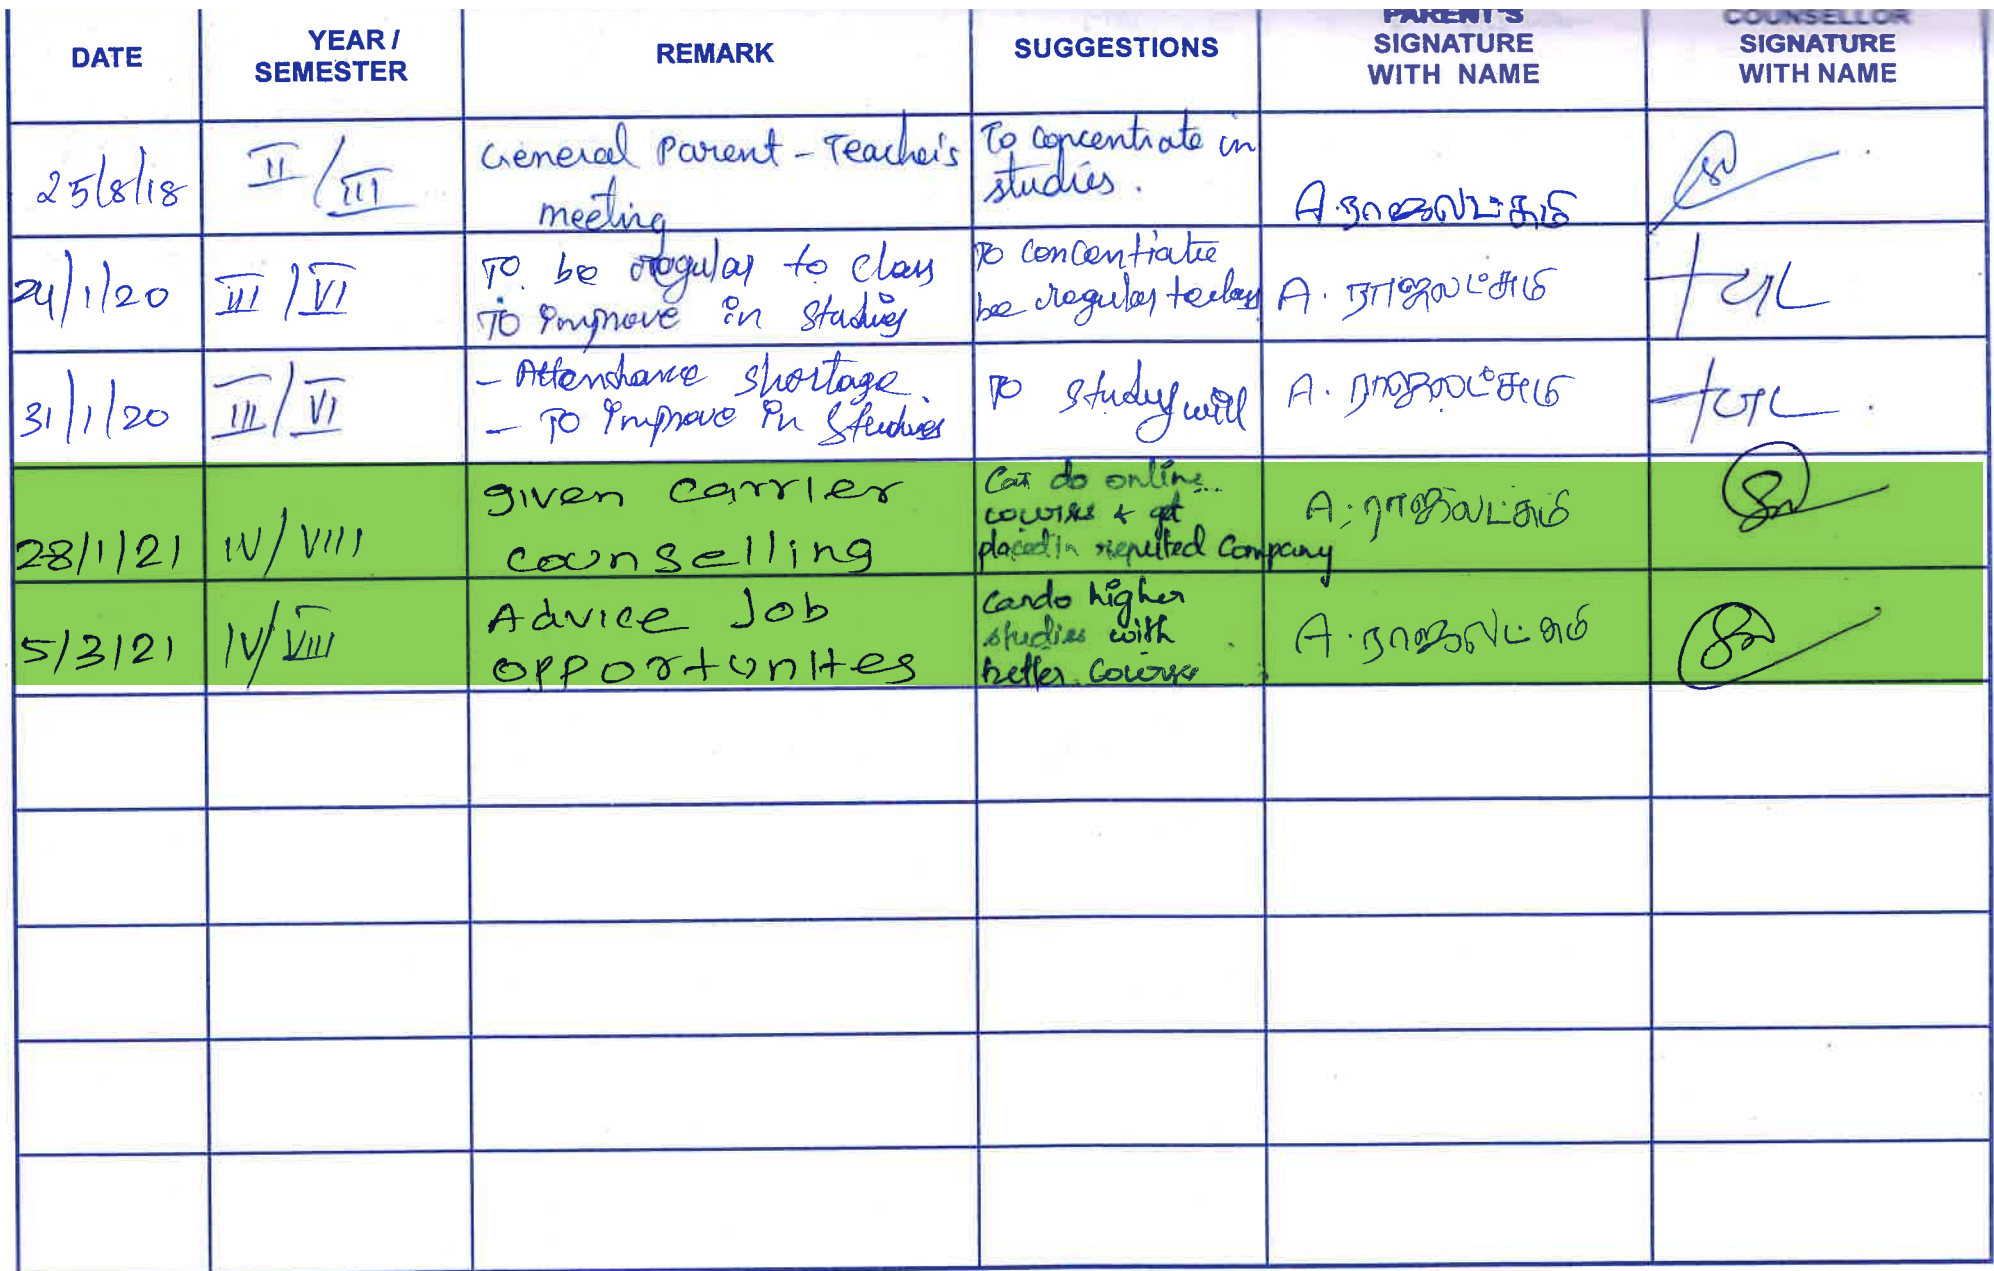 DATE
YEAR /
SEMESTER
REMARK
SUGGESTIONS
PARENT'S
SIGNATURE
WITH NAME
COUNSELLOR
SIGNATURE
WITH NAME
25/8/18
II / III
General Parent - Teacher's
meeting
To concentrate in
studies.
A. ராஜலட்சுமி
24/1/20
III / VI
To be regular to class
To Improve in studies
To concentrate
be regular to class
A. ராஜலட்சுமி
31/1/20
III / VI
- Attendance shortage
- To Improve in studies
To study well
A. ராஜலட்சுமி
28/1/21
IV / VIII
given carrier
counselling
Can do online
courses & get
placed in reputed Company
A. ராஜலட்சுமி
5/3/21
IV / VIII
Advice Job
opportunites
Can do higher
studies with
better course
A. ராஜலட்சுமி